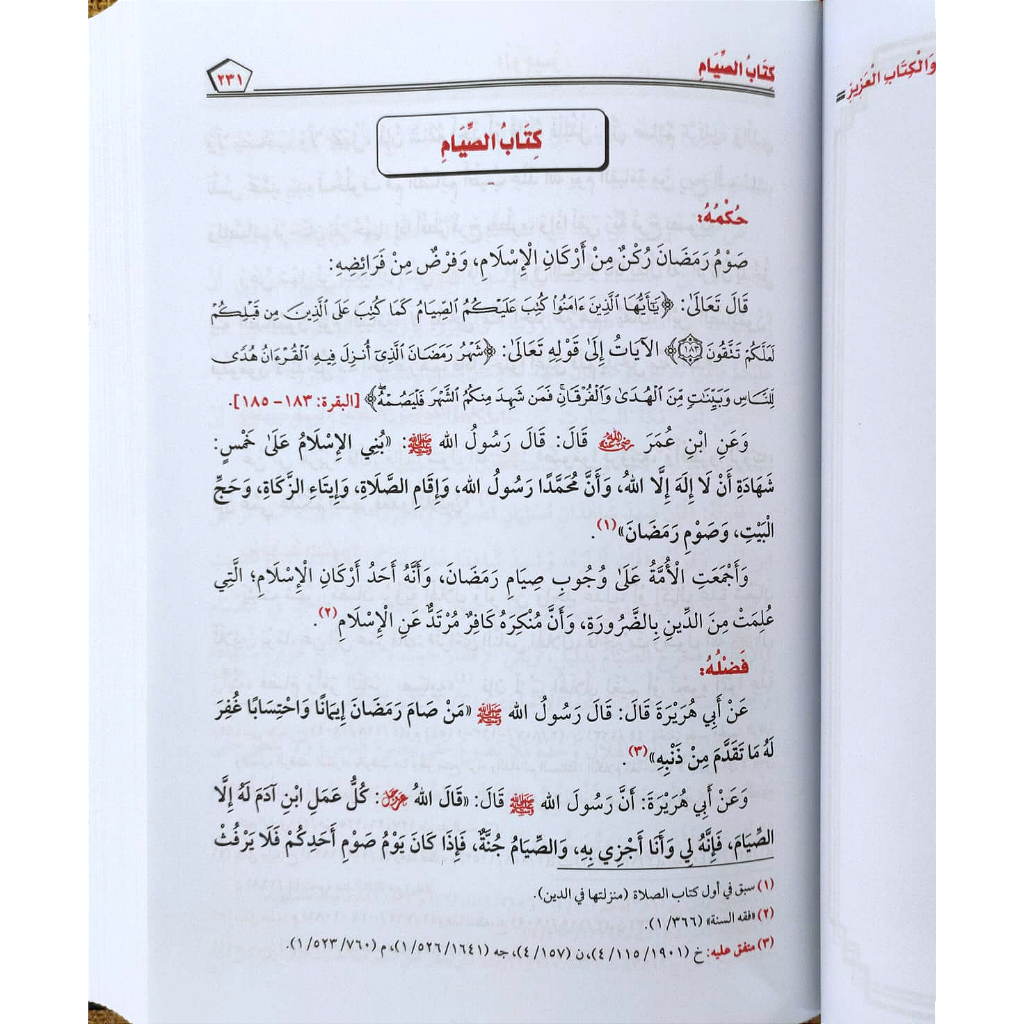 كِتَابُ الصِّيَامِ
٢٣١
وَالْكِتَابِ الْعَزِيزِ
كِتَابُ الصِّيَامِ
حُكْمُهُ:
صَوْمُ رَمَضَانَ رُكْنٌ مِنْ أَرْكَانِ الْإِسْلَامِ، وَفَرْضٌ مِنْ فَرَائِضِهِ:
قَالَ تَعَالَىٰ: ﴿يَٰٓأَيُّهَا ٱلَّذِينَ ءَامَنُوا۟ كُتِبَ عَلَيْكُمُ ٱلصِّيَامُ كَمَا كُتِبَ عَلَى ٱلَّذِينَ مِن قَبْلِكُمْ
لَعَلَّكُمْ تَتَّقُونَ ١٨٣﴾ الآيَاتُ إِلَىٰ قَوْلِهِ تَعَالَىٰ: ﴿شَهْرُ رَمَضَانَ ٱلَّذِىٓ أُنزِلَ فِيهِ ٱلْقُرْءَانُ هُدًى
لِّلنَّاسِ وَبَيِّنَٰتٍ مِّنَ ٱلْهُدَىٰ وَٱلْفُرْقَانِ ۚ فَمَن شَهِدَ مِنكُمُ ٱلشَّهْرَ فَلْيَصُمْهُ ۖ﴾ [البقرة: ١٨٣- ١٨٥].
وَعَنِ ابْنِ عُمَرَ رضي الله عنهما قَالَ: قَالَ رَسُولُ الله ﷺ: «بُنِي الإِسْلَامُ عَلَىٰ خَمْسٍ:
شَهَادَةِ أَنْ لَا إِلَهَ إِلَّا اللهُ، وَأَنَّ مُحَمَّدًا رَسُولُ الله، وَإِقَامِ الصَّلَاةِ، وَإِيتَاءِ الزَّكَاةِ، وَحَجِّ
الْبَيْتِ، وَصَوْمِ رَمَضَانَ»(١).
وَأَجْمَعَتِ الْأُمَّةُ عَلَىٰ وُجُوبِ صِيَامِ رَمَضَانَ، وَأَنَّهُ أَحَدُ أَرْكَانِ الْإِسْلَامِ؛ الَّتِي
عُلِمَتْ مِنَ الدِّينِ بِالضَّرُورَةِ، وَأَنَّ مُنْكِرَهُ كَافِرٌ مُرْتَدٌّ عَنِ الْإِسْلَامِ(٢).
فَضْلُهُ:
عَنْ أَبِي هُرَيْرَةَ قَالَ: قَالَ رَسُولُ الله ﷺ «مَنْ صَامَ رَمَضَانَ إِيمَانًا وَاحْتِسَابًا غُفِرَ
لَهُ مَا تَقَدَّمَ مِنْ ذَنْبِهِ»(٣).
وَعَنْ أَبِي هُرَيْرَةَ: أَنَّ رَسُولَ الله ﷺ قَالَ: «قَالَ اللهُ عز وجل: كُلُّ عَمَلِ ابْنِ آدَمَ لَهُ إِلَّا
الصِّيَامَ، فَإِنَّهُ لِي وَأَنَا أَجْزِي بِهِ، وَالصِّيَامُ جُنَّةٌ، فَإِذَا كَانَ يَوْمُ صَوْمِ أَحَدِكُمْ فَلَا يَرْفُثْ
(١) سبق في أول كتاب الصلاة (منزلتها في الدين).
(٢) «فقه السنة» (١/٣٦٦).
(٣) متفق عليه: خ (٤/١١٥/١٩٠١)، ن (٤/١٥٧)، جه (١/٥٢٦/١٦٤١)، م (١/٥٢٣/٧٦٠).